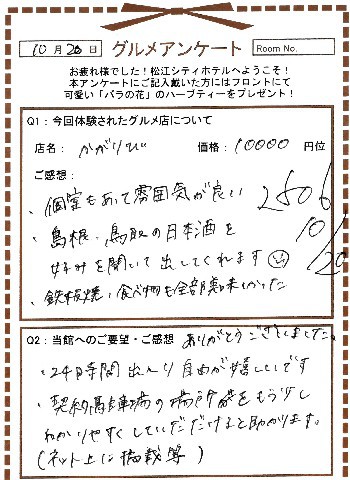 10月20日 グルメアンケート Room No.
お疲れ様でした！松江シティホテルへようこそ！
本アンケートにご記入戴いた方にはフロントにて
可愛い「バラの花」のハーブティーをプレゼント！
Q1：今回体験されたグルメ店について
店名：かがりび 価格：10000 円位
ご感想：
・個室もあって雰囲気が良い
・島根、鳥取の日本酒を
好みを聞いて出してくれます
・鉄板焼、食べ物も全部美味しかった
10/20
Q2：当館へのご要望・ご感想 ありがとうございました。
・24時間出入り自由が嬉しいです
・契約駐車場の場所等をもう少し
わかりやすくしていただけると助かります。
（ネット上に掲載等）